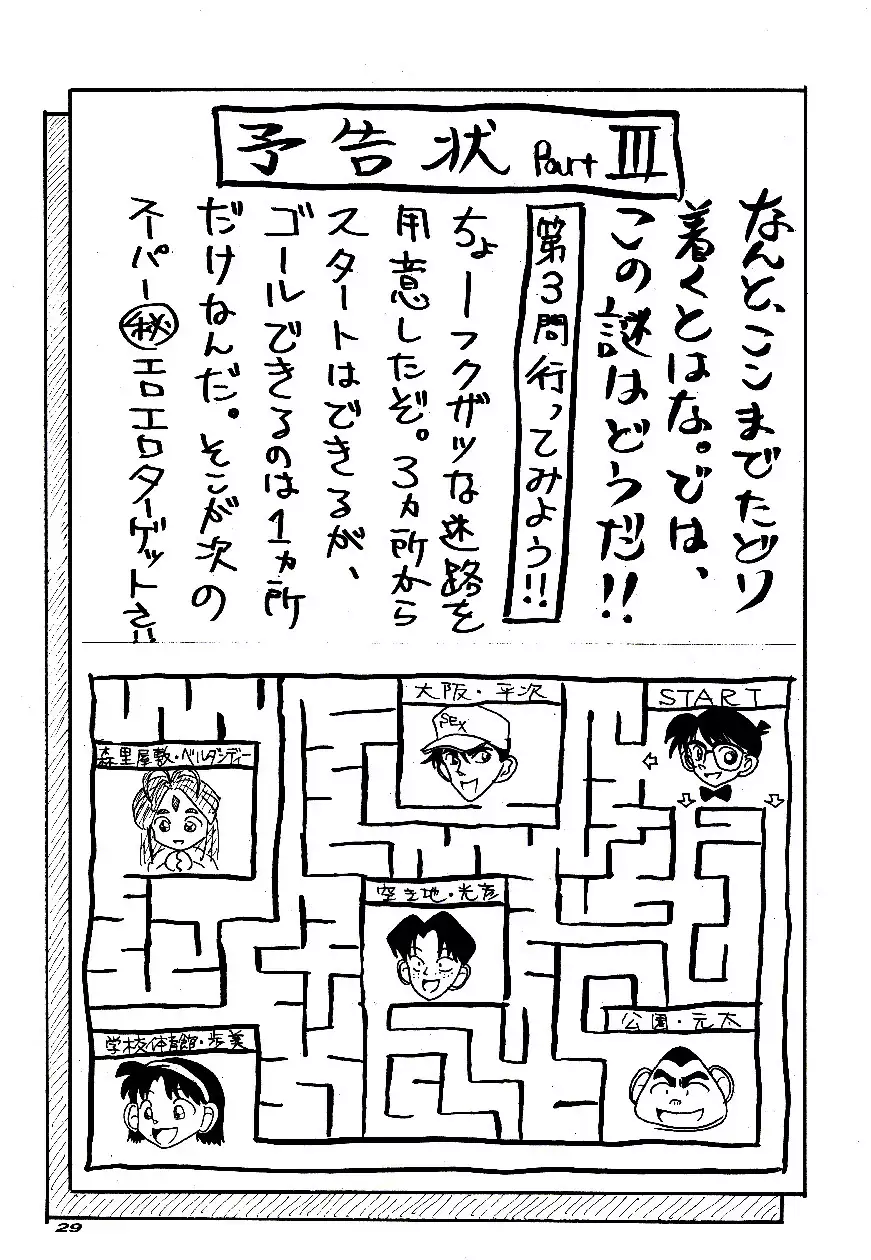 予告状 Part III
なんと、ここまでたどり
着くとはな。では、
この謎はどうだ!!
第3問行ってみよう!!
ちょーフクザツな迷路を
用意したぞ。3ヵ所から
スタートはできるが、
ゴールできるのは1ヵ所
だけなんだ。そこが次の
スーパー㊙エロエロターゲットさ!!
START
大阪・平次
SEX
森里屋敷・ベルダンディー
空き地・光彦
公園・元太
学校体育館・歩美
29